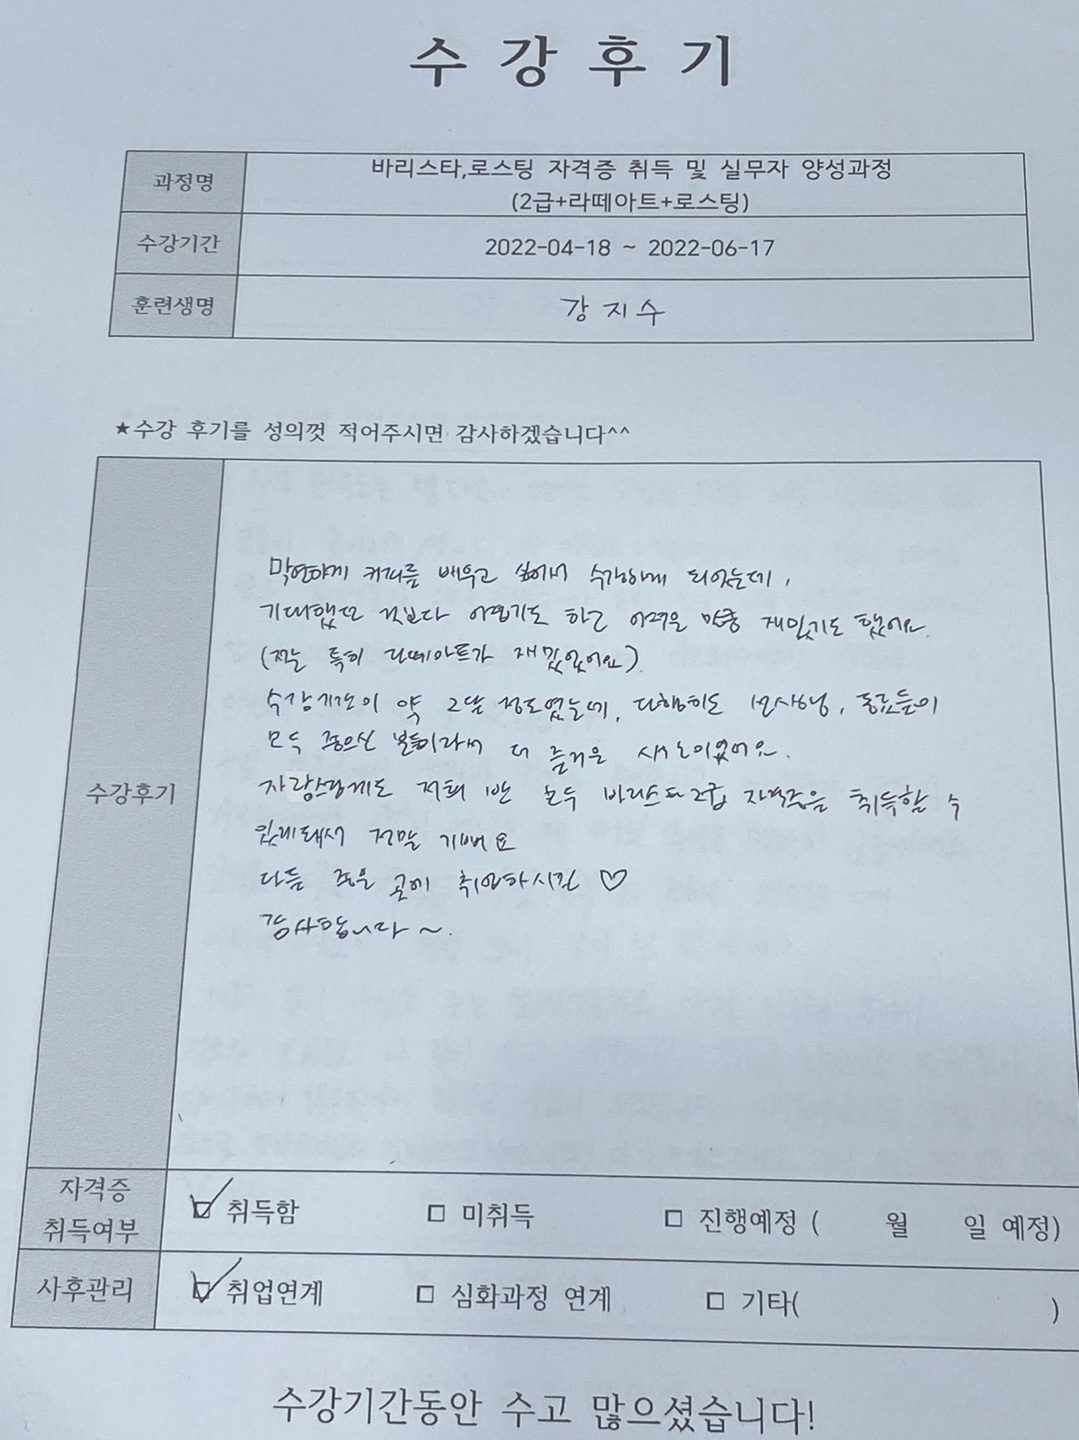 수 강 후 기
과정명
바리스타,로스팅 자격증 취득 및 실무자 양성과정
(2급+라떼아트+로스팅)
수강기간
2022-04-18 ~ 2022-06-17
훈련생명
강 지 수
★수강 후기를 성의껏 적어주시면 감사하겠습니다^^
수강후기
막연하게 커피를 배우고 싶어서 수강하게 되었는데,
기대했던 것보다 어렵기도 하고 어려운 만큼 재밌기도 했어요.
(저는 특히 라떼아트가 재밌었어요).
수강기간이 약 2달 정도였는데, 다행히도 선생님, 동료들이
모두 좋으신 분들이라서 더 즐거운 시간이었어요.
자랑스럽게도 저희 반 모두 바리스타 2급 자격증을 취득할 수
있게돼서 정말 기뻐요
다들 좋은 곳에 취업하시길 ♡
감사합니다 ~.
자격증
취득여부
☑ 취득함 □ 미취득 □ 진행예정 ( 월 일 예정)
사후관리
☑ 취업연계 □ 심화과정 연계 □ 기타( )
수강기간동안 수고 많으셨습니다!